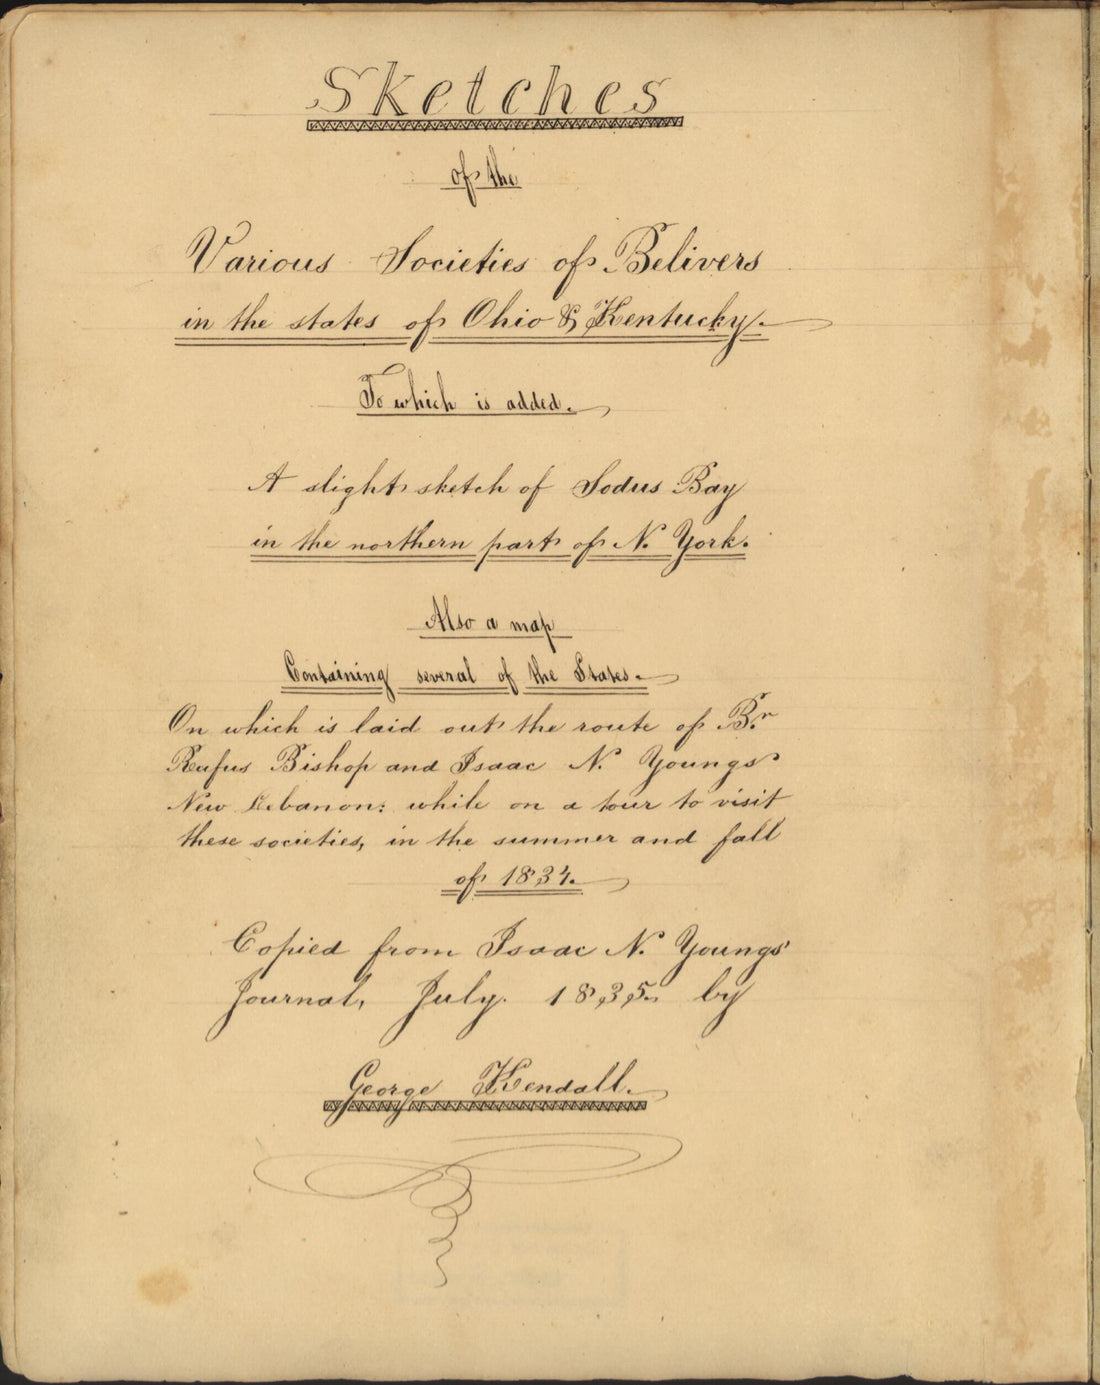 Sketches
of the
Various Societies of Belivers
in the states of Ohio & Kentucky.
To which is added.
A slight sketch of Sodus Bay
in the northern part of N. York.
Also a map
Containing several of the States.
On which is laid out the route of Br.
Rufus Bishop and Isaac N. Youngs
New Lebanon: while on a tour to visit
these societies, in the summer and fall
of 1834.
Copied from Isaac N. Youngs'
Journal, July. 1835. by
George Kendall.